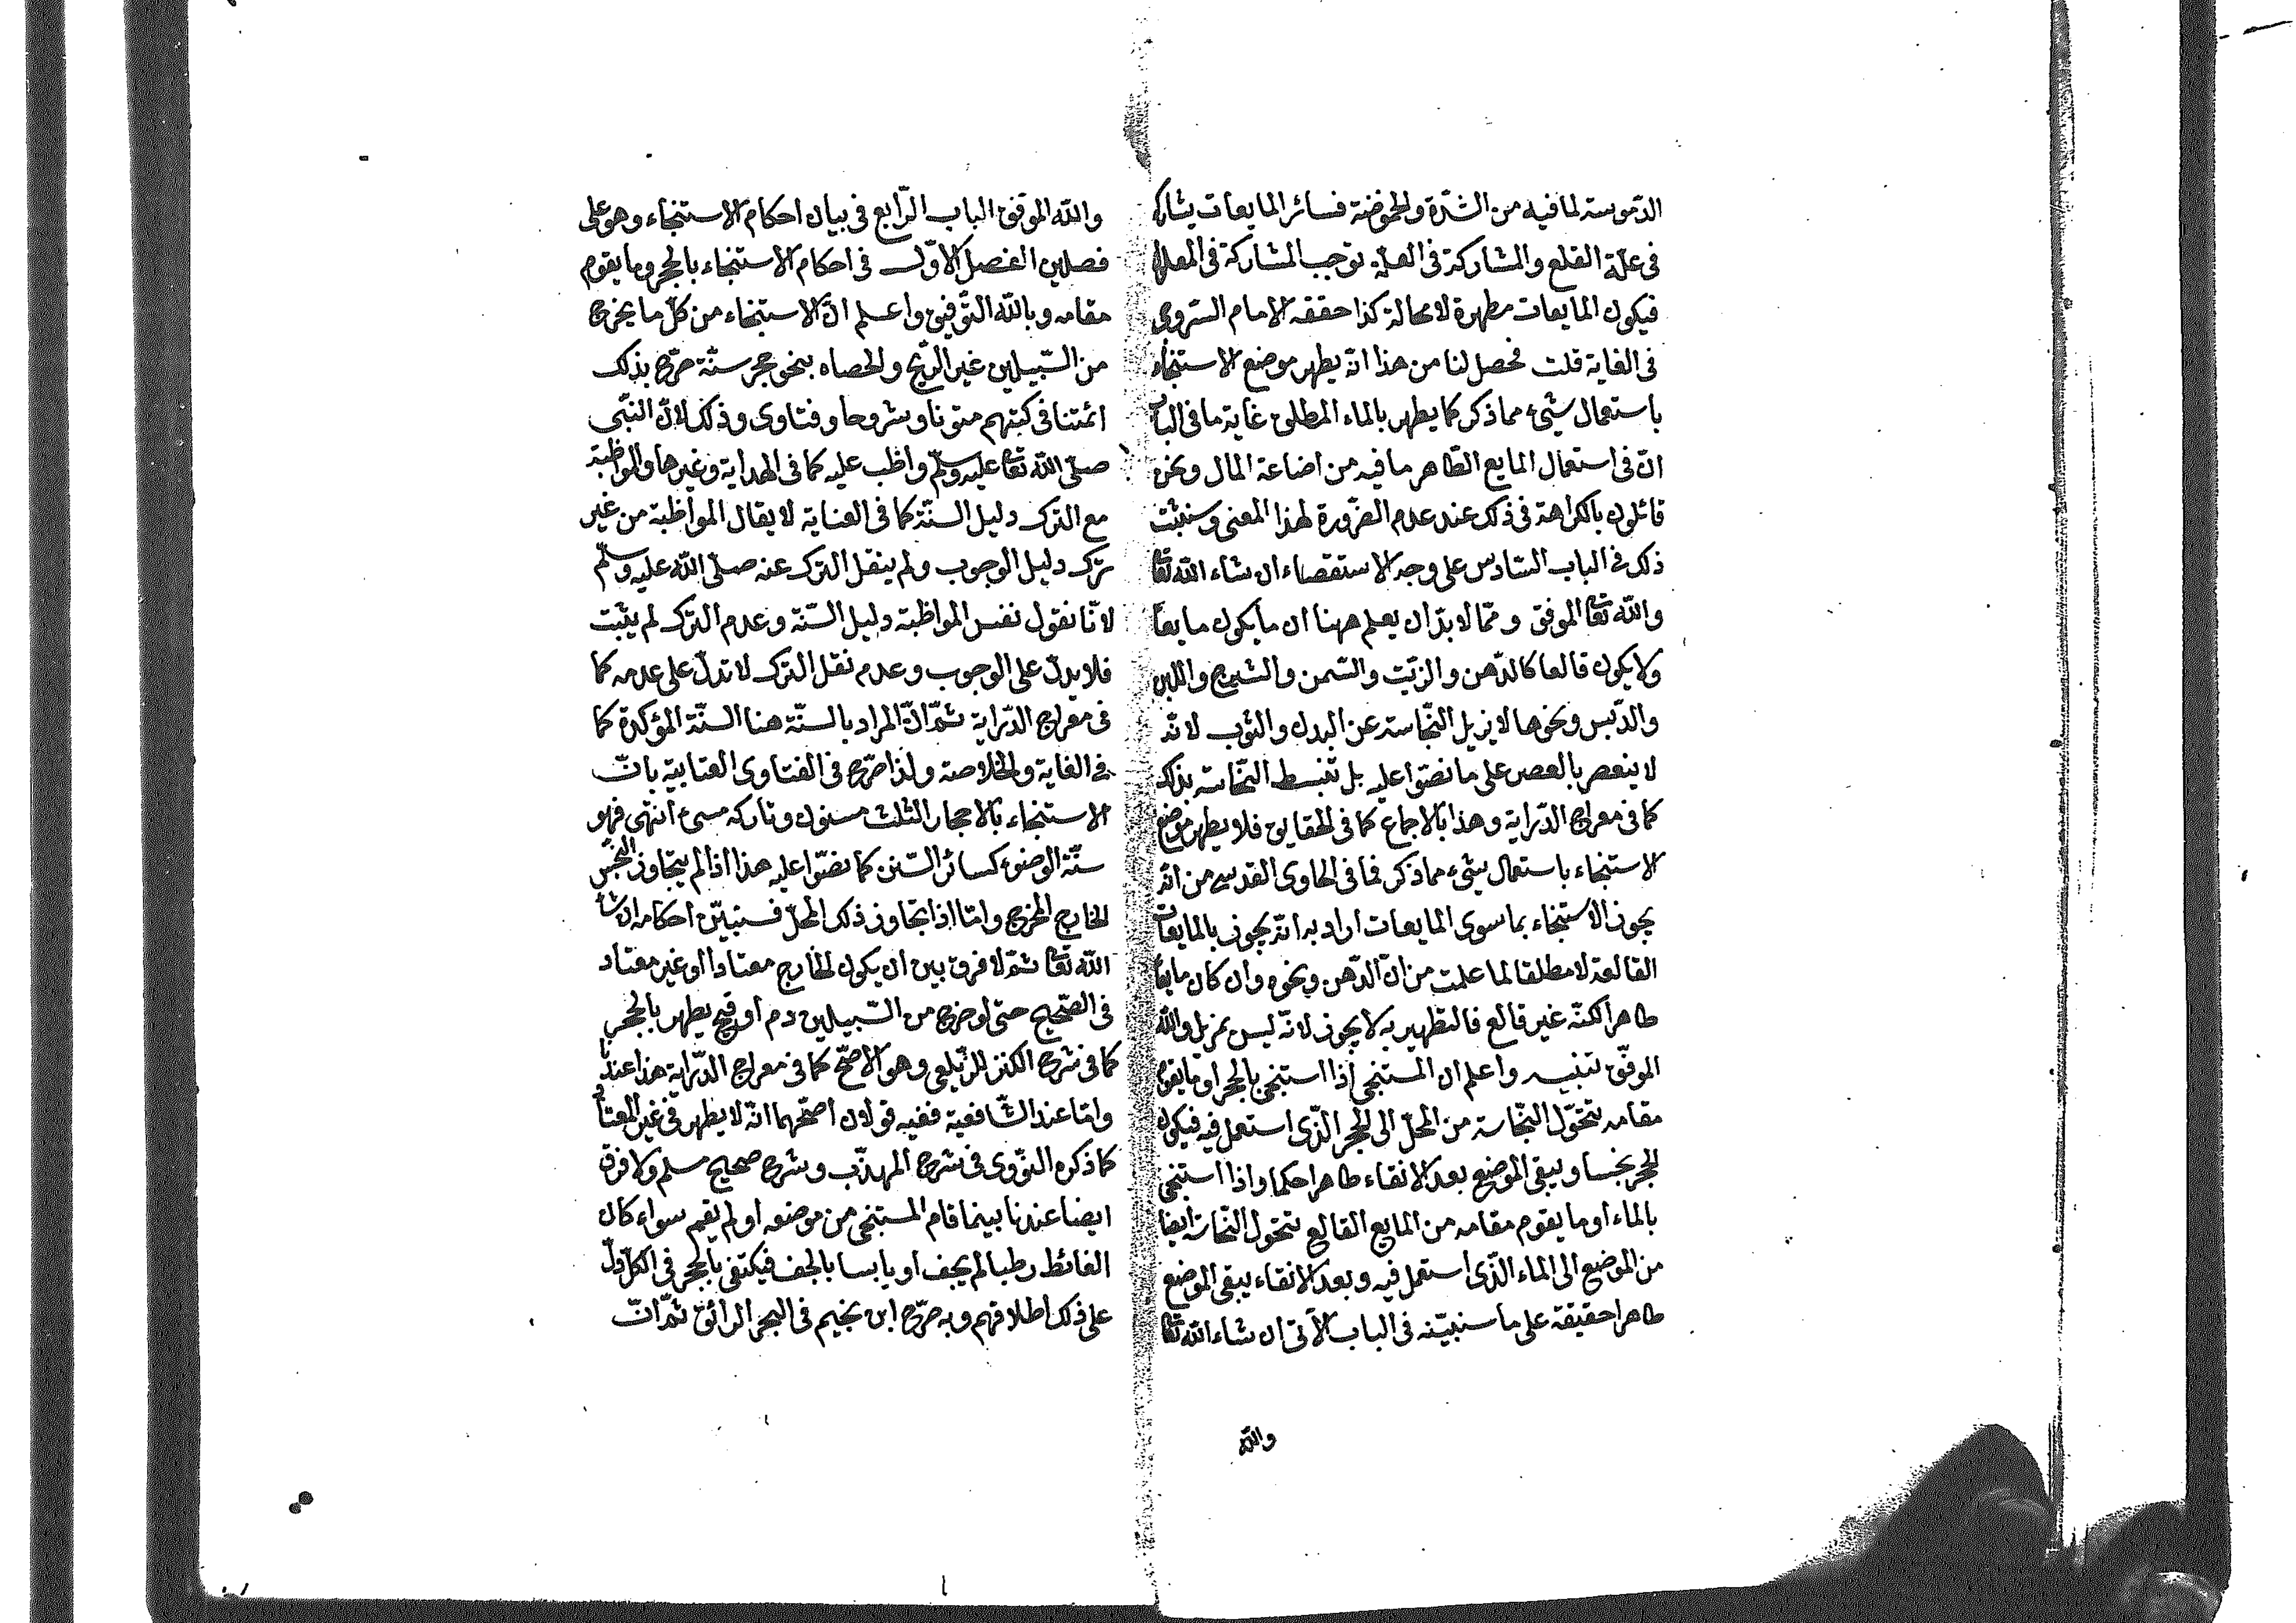 الدّسومة لما فيه من الشدّة والحموضة فسائر المايعات يشاركه
فى علّة القلع والمشاركة فى العلّة توجب المشاركة فى المعلول
فيكون المايعات مطهرة لا محالة كذا حققه الامام السّروجى
فى الغاية قلت فحصل لنا من هذا انّه يطهر موضع الاستنجاء
باستعمال شيئ مما ذكر كما يطهر بالماء المطلق غاية ما فى الباب
انّ فى استعمال المايع الطّاهر ما فيه من اضاعة المال ونحن
قائلون بالكراهة فى ذلك عند عدم الضّرورة لهذا المعنى وسنثبت
ذلك فى الباب السّادس على وجه الاستقصاء ان شاء الله تعا
والله تعا الموفق وممّا لا بدّ ان يعلم ههنا ان ما يكون مايعا
ولا يكون قالعا كالدّهن والزّيت والسّمن والشيرج واللبن
والدّبس ونحوها لا يزيل النّجاسة عن البدن والثوب لانّه
لا ينعصر بالعصر على ما نصّوا عليه بل تنبسط النّجاسة بذلك
كما فى معراج الدّراية وهذا بالاجماع كما فى الحقايق فلا يطهر موضع
الاستنجاء باستعمال شيئ مما ذكر فما فى الحاوى القدسى من انّه
يجوز الاستنجاء بما سوى المايعات اراد به انّه يجوز بالمايعات
القالعة لا مطلقا لما علمت من انّ الدّهن ونحوه وان كان مايعا
طاهرا لكنّه غير قالع فالتطهير به لا يجوز لانّه ليس بمزيل والله
الموفّق تنبيه واعلم ان المستنجى اذا استنجى بالحجر او ما يقوم
مقامه تتحوّل النّجاسة من المحلّ الى الحجر الّذى استعمل فيه فيكون
الحجر نجسا ويبقى الموضع بعد الانقاء طاهرا حكما واذا استنجى
بالماء او ما يقوم مقامه من المايع القالع تتحول النّجاسة ايضا
من الموضع الى الماء الّذى استعمل فيه وبعد الانقاء يبقى الموضع
طاهرا حقيقة على ما سنبيّنه فى الباب الآتى ان شاء الله تعا
والله
والله الموفق الباب الرّابع فى بيان احكام الاستنجاء وهو على
فصلين الفصل الاوّل فى احكام الاستنجاء بالحجر وما يقوم
مقامه وبالله التّوفيق واعلم انّ الاستنجاء من كلّ ما يخرج
من السّبيلين غير الرّيح والحصاه بنحو حجر سنّة صرّح بذلك
ائمتنا فى كتبهم متونا وشروحا وفتاوى وذلك لانّ النّبى
صلّى الله تعا عليه وسلّم واظب عليه كما فى الهداية وغيرها والمواظبة
مع الترك دليل السنّة كما فى العناية لا يقال المواظبة من غير
ترك دليل الوجوب ولم ينقل الترك عنه صلّى الله عليه وسلّم
لانّا نقول نفس المواظبة دليل السّنة وعدم الترك لم يثبت
فلا يدلّ على الوجوب وعدم نقل الترك لا تدلّ على عدمه كما
فى معراج الدّراية ثمّ انّ المراد بالسنّة هنا السنّة المؤكدة كما
فى الغاية والخلاصة ولذا صّرح فى الفتاوى العتابية بانّ
الاستنجاء بالاحجار الثلث مسنون وتاركه مسئ انتهى فهو
سنّة الوضوء كسائر السّنن كما نصّوا عليه هذا اذا لم يتجاوز النّجس
الخارج المخرج وامّا اذا تجاوز ذلك المحلّ فسنبيّن احكامه ان شا
الله تعا ثمّ لا فرق بين ان يكون الخارج معتادا او غير معتاد
فى الصّحيح حتى لو خرج من السّبيلين دم او قيح يطهر بالحجر
كما فى شرح الكنز للزّيلعى وهو الاصّح كما فى معراج الدّراية هذا عندنا
وامّا عند الشّافعية ففيه قولان اصّحهما انّه لا يطهر فى غير المعتاد
كما ذكره النّووى فى شرح المهذّب وشرح صحيح مسلم ولا فرق
ايضا عندنا بينما قام المستنجى من موضعه او لم يقم سواء كان
الغائط رطبا لم يجف او يابسا بالجف فيكتفى بالحجر فى الكلّ دلّ
على ذلك اطلاقهم وبه صرّح ابن نجيم فى البحر الرائق ثمّ انّ